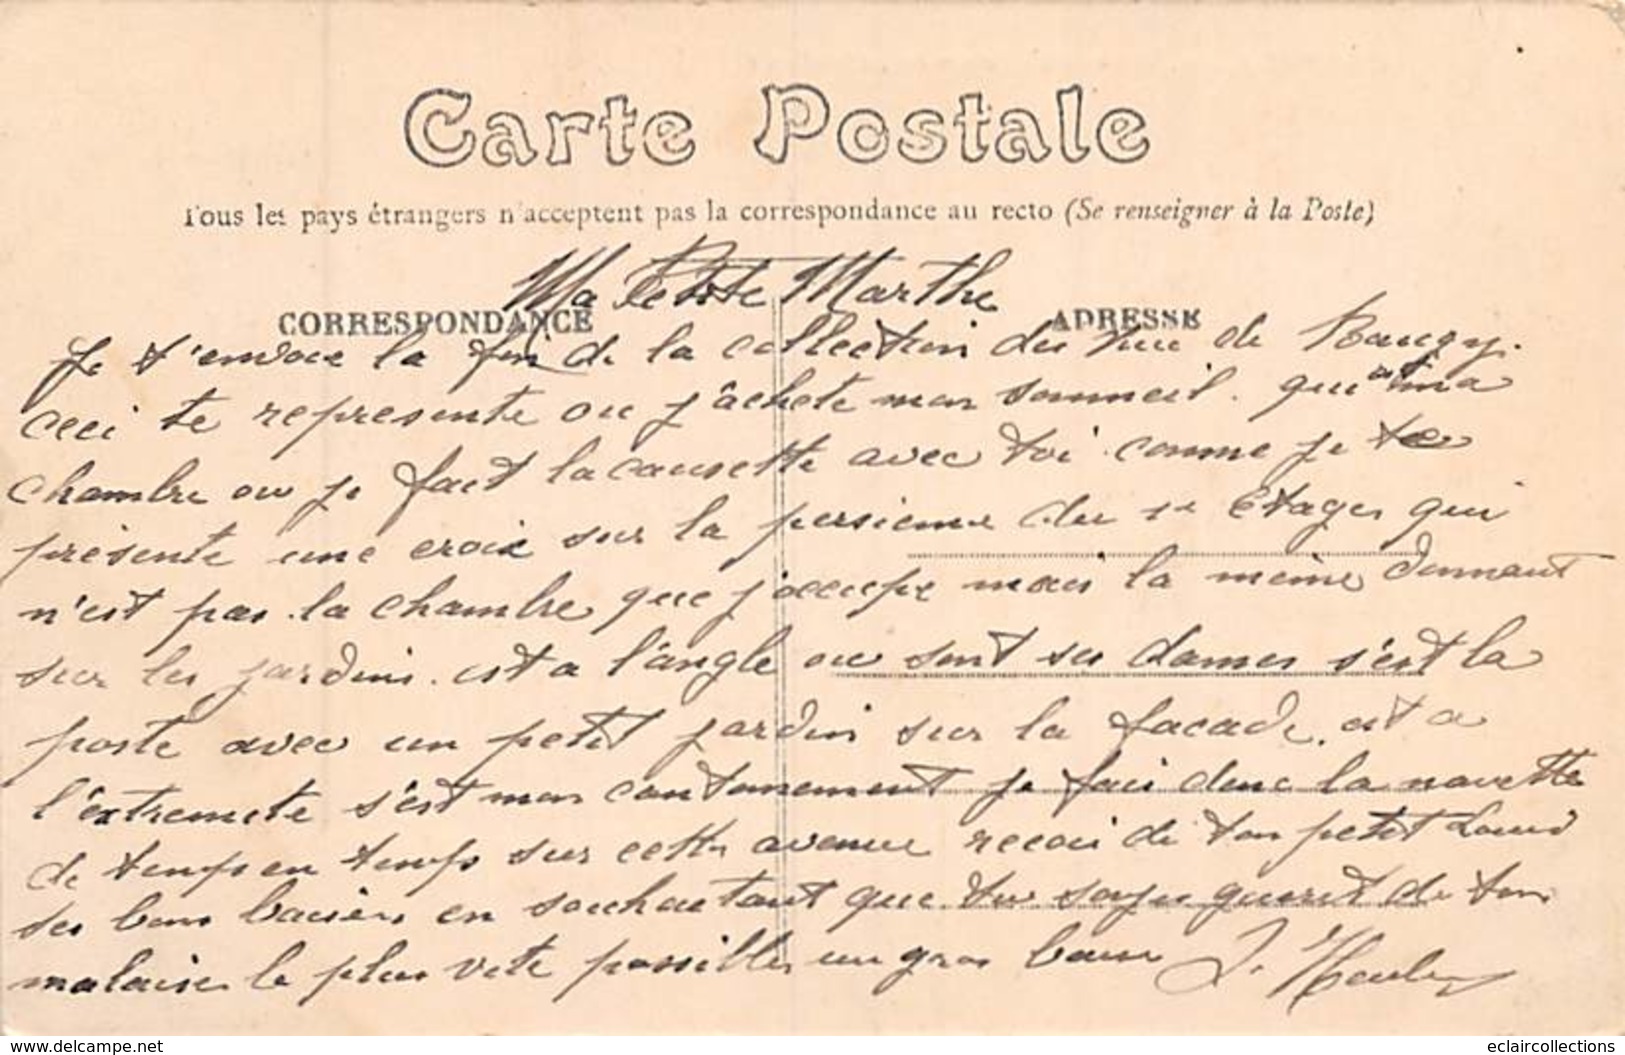 Carte Postale
Tous les pays étrangers n'acceptent pas la correspondance au recto (Se renseigner à la Poste)
Ma Petite Marthe
CORRESPONDANCE
ADRESSE
Je t'envoie la fin de la collection des vue de Baugy.
ceci te represente ou j'achete mon sommeil. qui est ma
chambre ou je fait la causette avec toi comme je te
présente une croix sur la persienne du 1er Etages qui
n'est pas la chambre que j'occupe mais la meme donnant
sur les jardins. est a l'angle ou sont ses dames s'est la
poste avec un petit jardin sur la facade. est a
l'extremete s'est mon cantonnement je fais donc la navette
de temps en temps sur cette avenue recois de ton petit Louis
ses bons baisers en souhaitant que tu soyes guerit de ton
malaises le plus vite possible un gros baiser
www.delcampe.net
eclaircollections